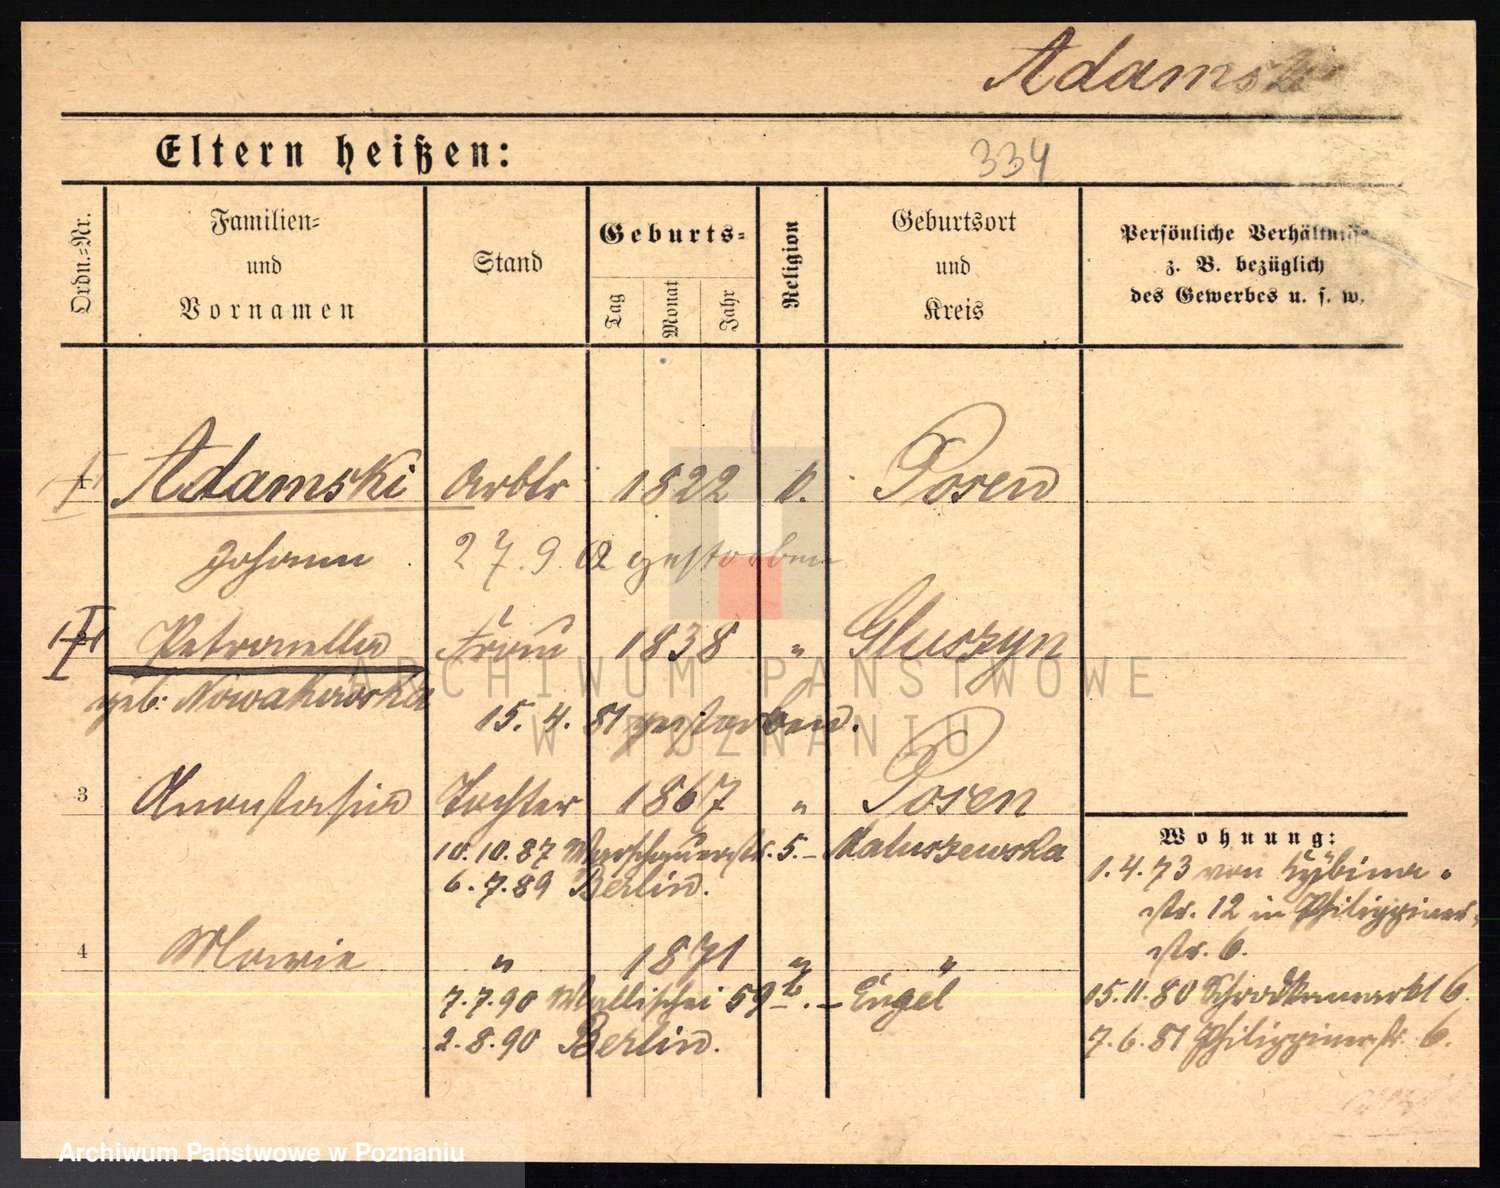 Adamski
Eltern heißen:
334
Ordn.-Nr.
Familien-
und
Vornamen
Stand
Geburts-
Tag
Monat
Jahr
Religion
Geburtsort
und
Kreis
Persönliche Verhältnisse
z. B. bezüglich
des Gewerbes u. s. w.
1 Adamski Arbtr 1822 Posen
Johann 27.9. gestorben
Petronella Frau 1838 " Gluszyn
geb: Nowakowska
15. 4. 81 gestorben.
3 Anastasia Tochter 1867 " Posen
10.10.87 Warschauerstr. 5. – Matuszewska
6.7.89 Berlin.
4 Marie " 1871 " "
7.7.90 Wallischei 59 – Engel
2.8.90 Berlin.
Wohnung:
1.4.73 von
str. 12 in Philippiner-
str. 6.
15.11.80 Schrodkamarkt 6.
7.6.81 Philippinerstr. 6.
ARCHIWUM PAŃSTWOWE
W POZNANIU
Archiwum Państwowe w Poznaniu